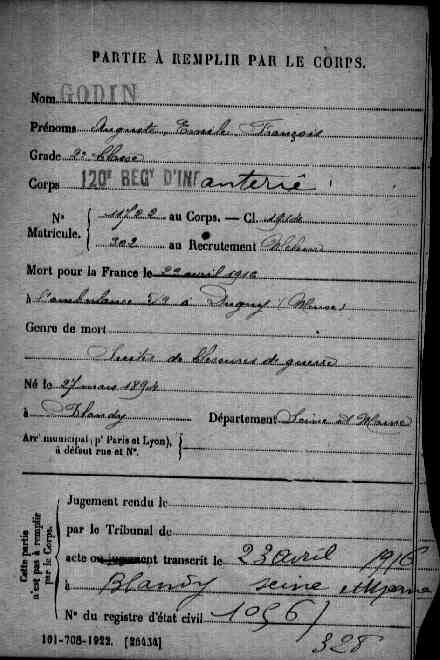 PARTIE À REMPLIR PAR LE CORPS.
Nom GODIN
Prénoms Auguste Emile François
Grade 2e Classe
Corps 120e REGt D'INFanterie
N° Matricule. { 11722 au Corps. — Cl. 1914
302 au Recrutement Melun
Mort pour la France le 22 avril 1916
à l'ambulance 5/9 à Dugny (Meuse)
Genre de mort
Suites de blessures de guerre
Né le 27 mars 1894
à Blandy Département Seine et Marne
Arrt municipal (pr Paris et Lyon), à défaut rue et N°. {
Cette partie n'est pas à remplir par le Corps.
Jugement rendu le
par le Tribunal de
acte ou jugement transcrit le 23 avril 1916
à Blandy Seine et Marne
N° du registre d'état civil 1056/
328
101-708-1922. [26434]